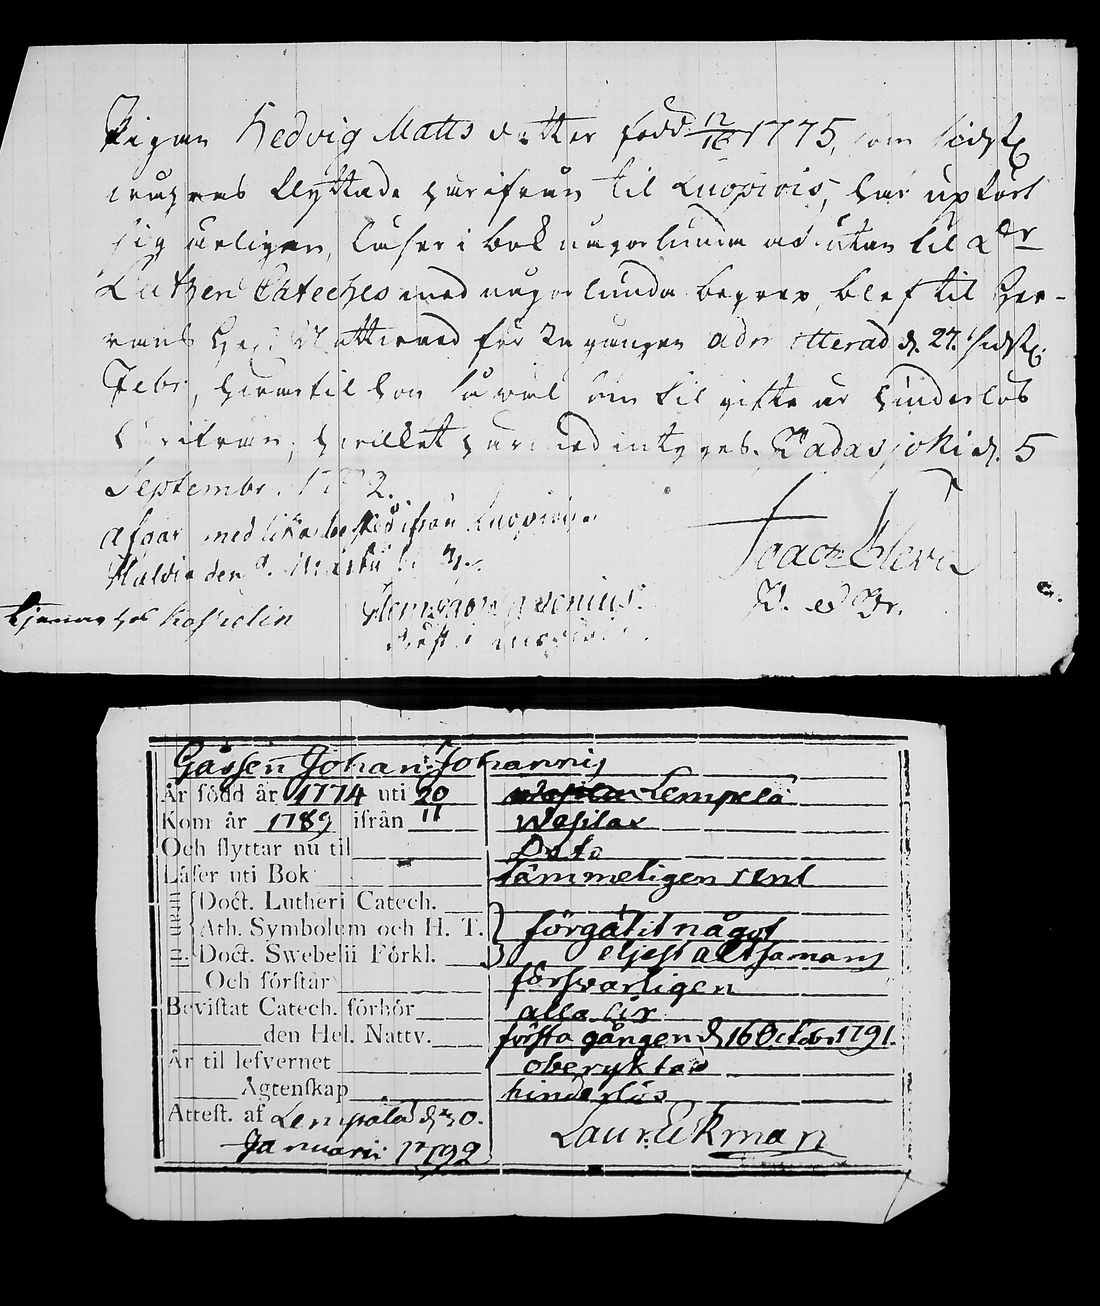 Pigan Hedvig Matts dotter född 12/10 1775, som sidstl.
flyttade härifrån til Luopiois, har upfört
sig ärligen, läser i bok någorlunda och utan til Dr
Lutheri Cateches med någorlunda begrep, blef til Her-
rans Hel. Nattvard för 2a gången admitterad d. 27. sidstl.
Febr., hvartil hon så väl som til gifte är hinderlös
härifrån, hvilket härmed intygas. Padasjoki d. 5
Septembr. 1792.
afgår med lika besked ifrån Luopiois
den 9. Martii
Tjenar hos
P. ed Br.
Gåssen Johan Johannis
År född år 1774 uti 20 Lempelä
Kom år 1789 ifrån 11 Wesilax
Och flyttar nu til Dito
Läser uti Bok tämmeligen rent
Doct. Lutheri Catech.
Ath. Symbolum och H. T. förgätit något
Doct. Swebelii Förkl. eljest altsamans
Och förstår försvarligen
Bevistat Catech. förhör alla år
den Hel. Nattv. första gången d 16 Octobr 1791.
År til lefvernet oberyktad
Ägtenskap hinderlös
Attest. af Lempälä d 30.
Januarii 1792 Laur. Ekman